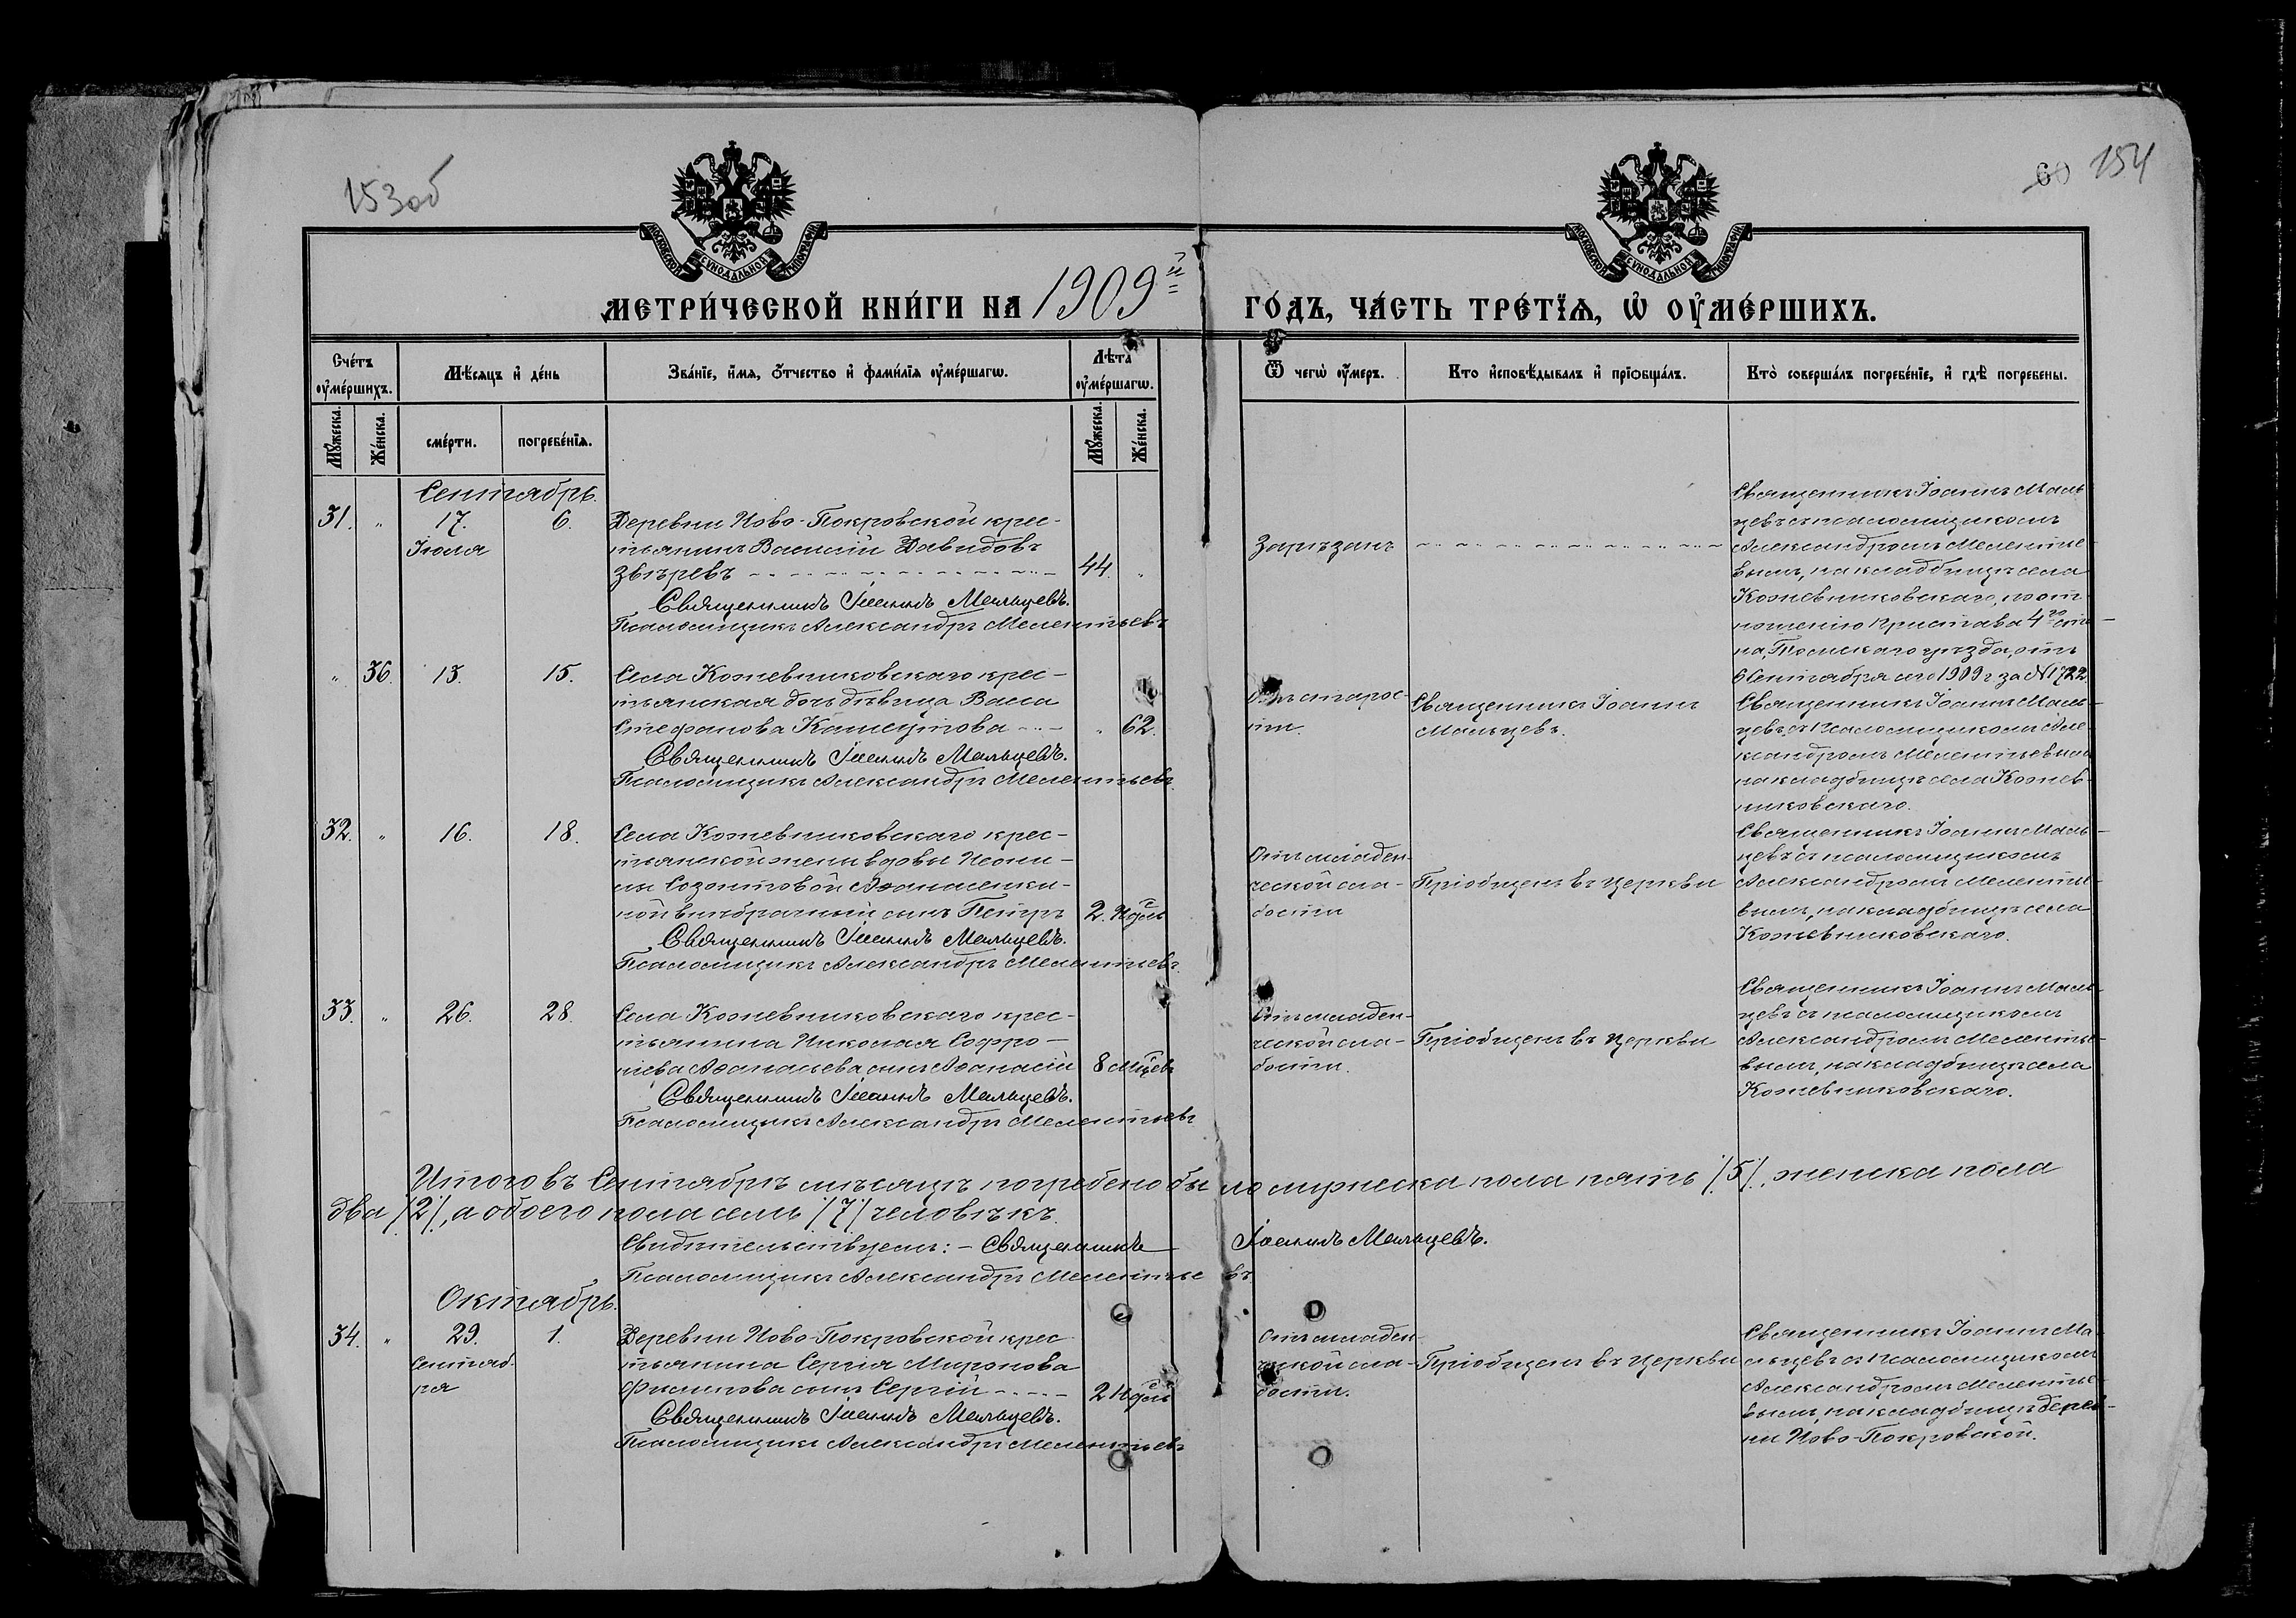 153об
60 154
МОСКОВСКОЙ СѴНОДАЛЬНОЙ ТИПОГРАФІИ
МОСКОВСКОЙ СѴНОДАЛЬНОЙ ТИПОГРАФІИ
МЕТРИ́ЧЕСКОЙ КНИ́ГИ НА 1909й ГО́ДЪ, ЧА́СТЬ ТРЕ́ТЇѦ, Ѡ҆ ОУ҆МЕ́РШИХЪ.
Сче́тъ оу҆ме́ршихъ.
Мѣ́сяцъ и҆ де́нь
Зва́нїе, и҆́мя, о҆́тчество и҆ фами́лїя оу҆ме́ршагѡ.
Лѣ́та оу҆ме́ршагѡ.
Ѿ чегѡ̀ оу҆́меръ.
Кто̀ и҆сповѣ́дывалъ и҆ прїѡбща́лъ.
Кто̀ соверша́лъ погребе́нїе, и҆ гдѣ̀ погребены̀.
Мꙋ́жеска. Же́нска.
сме́рти. погребе́нїя.
Мꙋ́жеска. Же́нска.
Сентябрь.
31. " 17. 6.
Іюля
Деревни Ново-Покровской крес-
тьянинъ Василій Давидовъ
Звѣревъ 44. "
Священникъ Іоаннъ Мальцевъ.
Псаломщикъ Александръ Мелентьевъ
Зарѣзанъ
Священникъ Іоаннъ Маль
цевъ съ псаломщикомъ
Александромъ Мелентье-
вымъ, на кладбищѣ села
Кожевниковскаго, по от-
ношенію Пристава 4го ста-
на, Томскаго уѣзда, отъ
6 Сентября сего 1909 г за № 1722.
" 36. 13. 15.
Села Кожевниковскаго крес-
тьянская дочь дѣвица Васса
Стефанова " 62.
Священникъ Іоаннъ Мальцевъ.
Псаломщикъ Александръ Мелентьевъ.
Отъ старос-
ти.
Священникъ Іоаннъ
Мальцевъ.
Священникъ Іоаннъ Маль-
цевъ съ Псаломщикомъ Але-
ксандромъ Мелентьевымъ
на кладбищѣ села Кожев-
никовскаго.
32. " 16. 18.
Села Кожевниковскаго крес-
тьянской жены вдовы Неони-
лы Созонтовой Аѳанасенки-
ной внѣбрачный сынъ Петръ 2. Недѣль
Священникъ Іоаннъ Мальцевъ.
Псаломщикъ Александръ Мелентьевъ.
Отъ младен-
ческой сла-
бости
Пріобщенъ въ Церкви
Священникъ Іоаннъ Маль-
цевъ съ псаломщикомъ
Александромъ Мелентье-
вымъ, на кладбищѣ села
Кожевниковскаго.
33. " 26. 28.
Села Кожевниковскаго крес-
тьянина Николая Софро-
ніева Аѳанасьева сынъ Аѳанасій 8 Мцевъ
Священникъ Іоаннъ Мальцевъ.
Псаломщикъ Александръ Мелентьевъ
Отъ младен-
ческой сла-
бости.
Пріобщенъ въ Церкви
Священникъ Іоаннъ Маль-
цевъ съ псаломщикомъ
Александромъ Мелентье-
вымъ, на кладбищѣ села
Кожевниковскаго.
Итого въ Сентябрѣ мѣсяцѣ погребено было мужеска пола пять /5/, женска пола
два /2/, а обоего пола семь /7/ человѣкъ.
Свидѣтельствуемъ: – Священникъ Іоаннъ Мальцевъ.
Псаломщикъ Александръ Мелентьевъ
Октябрь.
34. " 29. 1.
Сентяб-
ря
Деревни Ново-Покровской крес
тьянина Сергія Миронова
Филипова сынъ Сергій 2 Недѣль
Священникъ Іоаннъ Мальцевъ.
Псаломщикъ Александръ Мелентьевъ
Отъ младен-
ческой сла-
бости.
Пріобщенъ въ Церкви
Священникъ Іоаннъ Ма-
льцевъ съ Псаломщикомъ
Александромъ Мелентье-
вымъ, на кладбищѣ дерев-
ни Ново-Покровской.